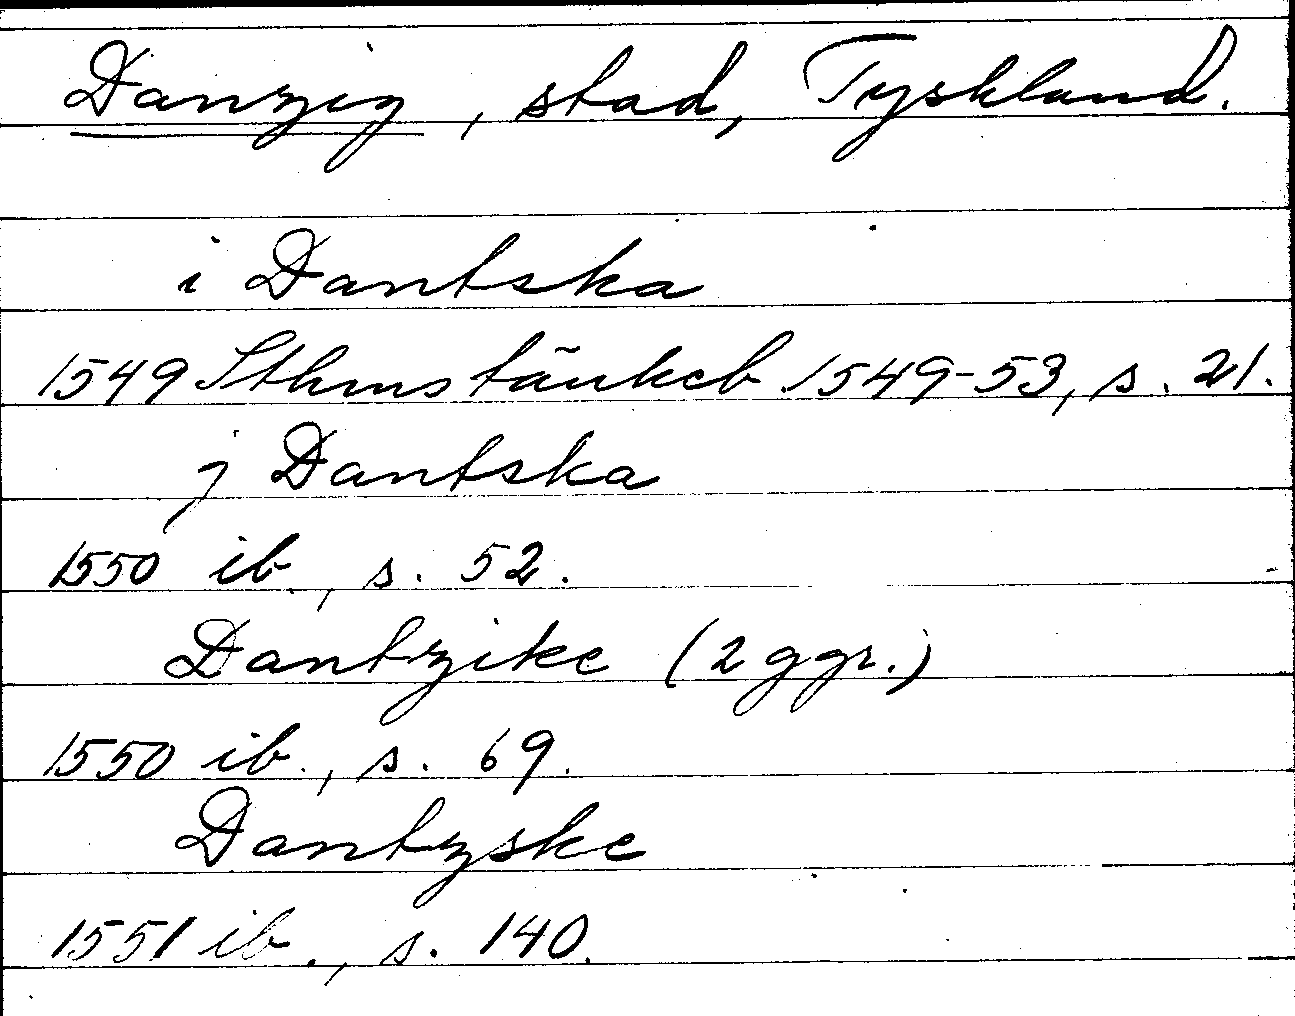 Danzig, stad, Tyskland.
i Dantska
1549 Sthms tänkeb 1549-53, s. 21.
j Dantska
1550 ib., s. 52.
Dantzike (2 ggr.)
1550 ib., s. 69.
Dantzske
1551 ib., s. 140.